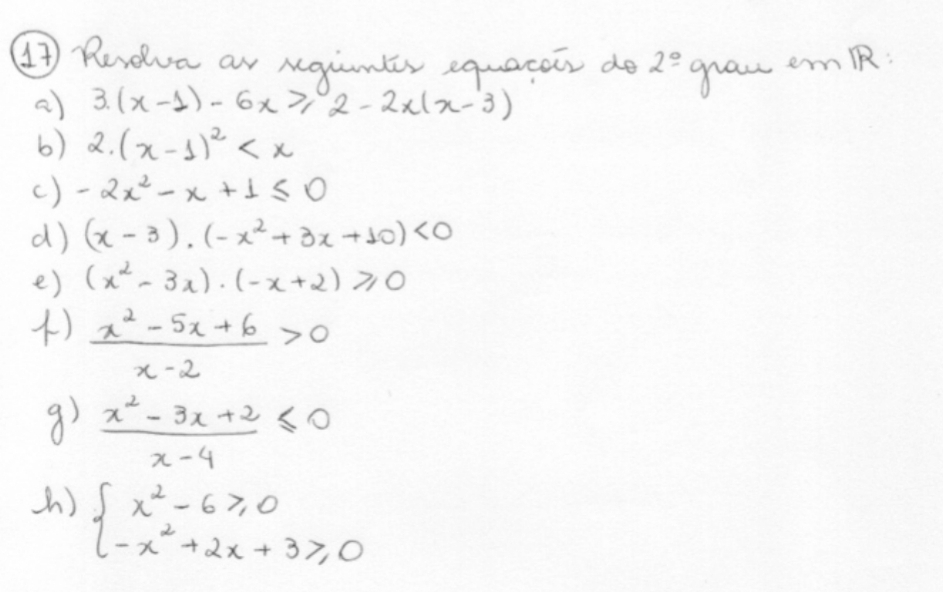 17 Resolva as seguintes equações do 2º grau em IR:
a) 3.(x-1) - 6x ≥ 2 - 2x(x-3)
b) 2.(x-1)² < x
c) -2x² - x + 1 ≤ 0
d) (x-3).(-x²+3x+10)<0
e) (x²-3x).(-x+2) ≥ 0
f) x² - 5x + 6 > 0
x-2
g) x² - 3x + 2 ≤ 0
x-4
h) { x² - 6 ≥ 0
-x² + 2x + 3 ≥ 0